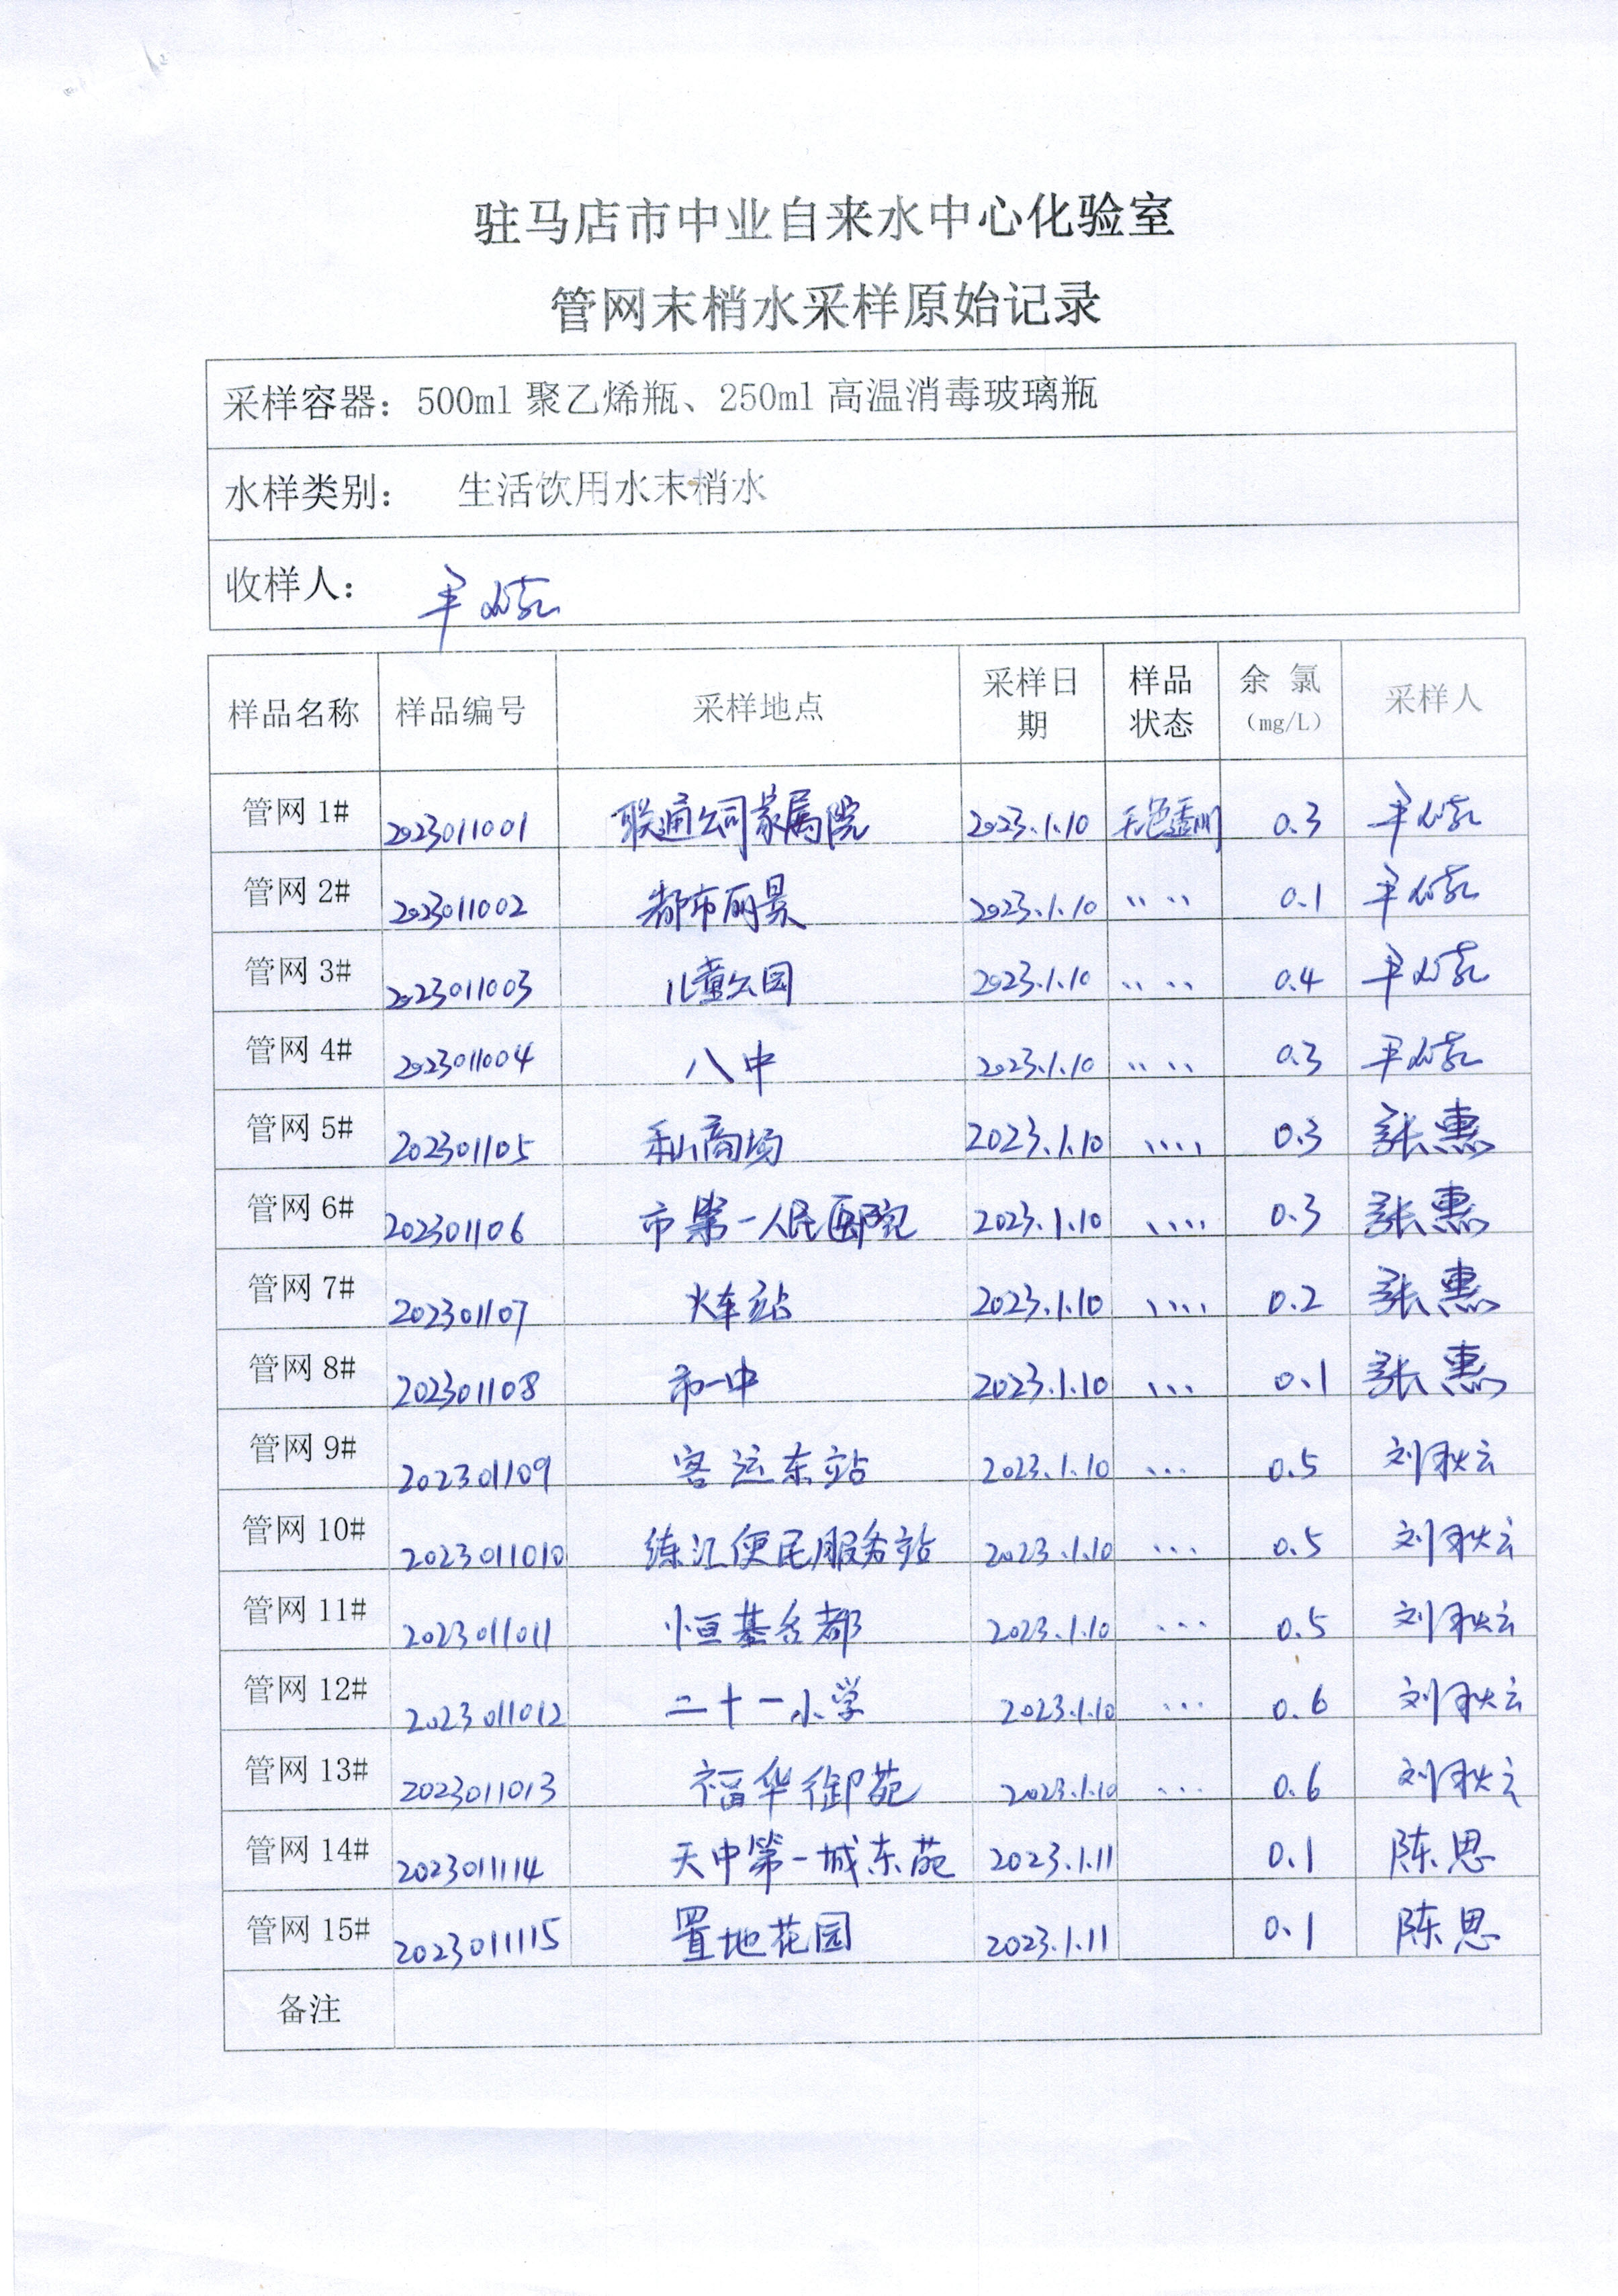 驻马店市中业自来水中心化验室
管网末梢水采样原始记录
采样容器：500ml 聚乙烯瓶、250ml 高温消毒玻璃瓶
水样类别： 生活饮用水末梢水
收样人：
样品名称 样品编号 采样地点 采样日期 样品状态 余 氯（mg/L） 采样人
管网 1# 2023011001 联通公司家属院 2023.1.10 无色透明 0.3
管网 2# 2023011002 都市丽景 2023.1.10 〃 〃 0.1
管网 3# 2023011003 儿童公园 2023.1.10 〃 〃 0.4
管网 4# 2023011004 八中 2023.1.10 〃 〃 0.3
管网 5# 202301105 商场 2023.1.10 〃〃 0.3 张惠
管网 6# 202301106 市第一人民医院 2023.1.10 〃〃 0.3 张惠
管网 7# 202301107 火车站 2023.1.10 〃〃 0.2 张惠
管网 8# 202301108 市一中 2023.1.10 ... 0.1 张惠
管网 9# 202301109 客运东站 2023.1.10 ... 0.5 刘秋云
管网 10# 2023011010 练江便民服务站 2023.1.10 ... 0.5 刘秋云
管网 11# 2023011011 恒基名都 2023.1.10 ... 0.5 刘秋云
管网 12# 2023011012 二十一小学 2023.1.10 ... 0.6 刘秋云
管网 13# 2023011013 福华御苑 2023.1.10 ... 0.6 刘秋云
管网 14# 2023011114 天中第一城东苑 2023.1.11 0.1 陈思
管网 15# 2023011115 置地花园 2023.1.11 0.1 陈思
备注